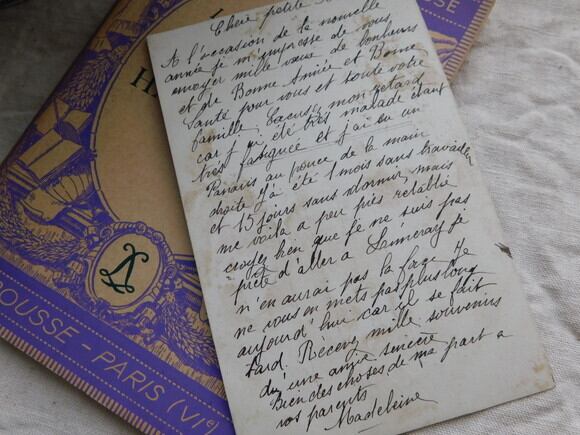 Chere petite
A l'occasion de la nouvelle
année je m'empresse de vous
envoyer mille vœux de bonheurs
et de Bonne Année et Bonne
Santé pour vous et toute votre
famille. Excusez mon retard
car j'ai été très malade étant
très fatiguée et j'ai eu un
Panaris au pouce de la main
droite j'ai été 1 mois sans travailler
et 15 jours sans dormir mais
me voila a peu près rétablie
croyez bien que je ne suis pas
prête d'aller a Liméray je
n'en aurai pas la face. Je
ne vous en mets pas plus long
aujourd'hui car il se fait
tard. Recevez mille souvenirs
d'une amie sencère
Bien des choses de ma part a
vos parents
Madeleine
H
OUSSE - PARIS (VIe)
USSE